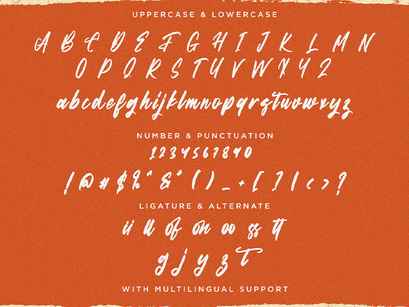 UPPERCASE & LOWERCASE
A B C D E F G H I J K L M N
O P Q R S T U V W X Y Z
abcdefghijklmnopqrstuvwxyz
NUMBER & PUNCTUATION
1234567890
! @ # $ % ^ & * ( ) _ + [ ] | < > ?
LIGATURE & ALTERNATE
ii ll of on oo ss tt
g j y z t
WITH MULTILINGUAL SUPPORT